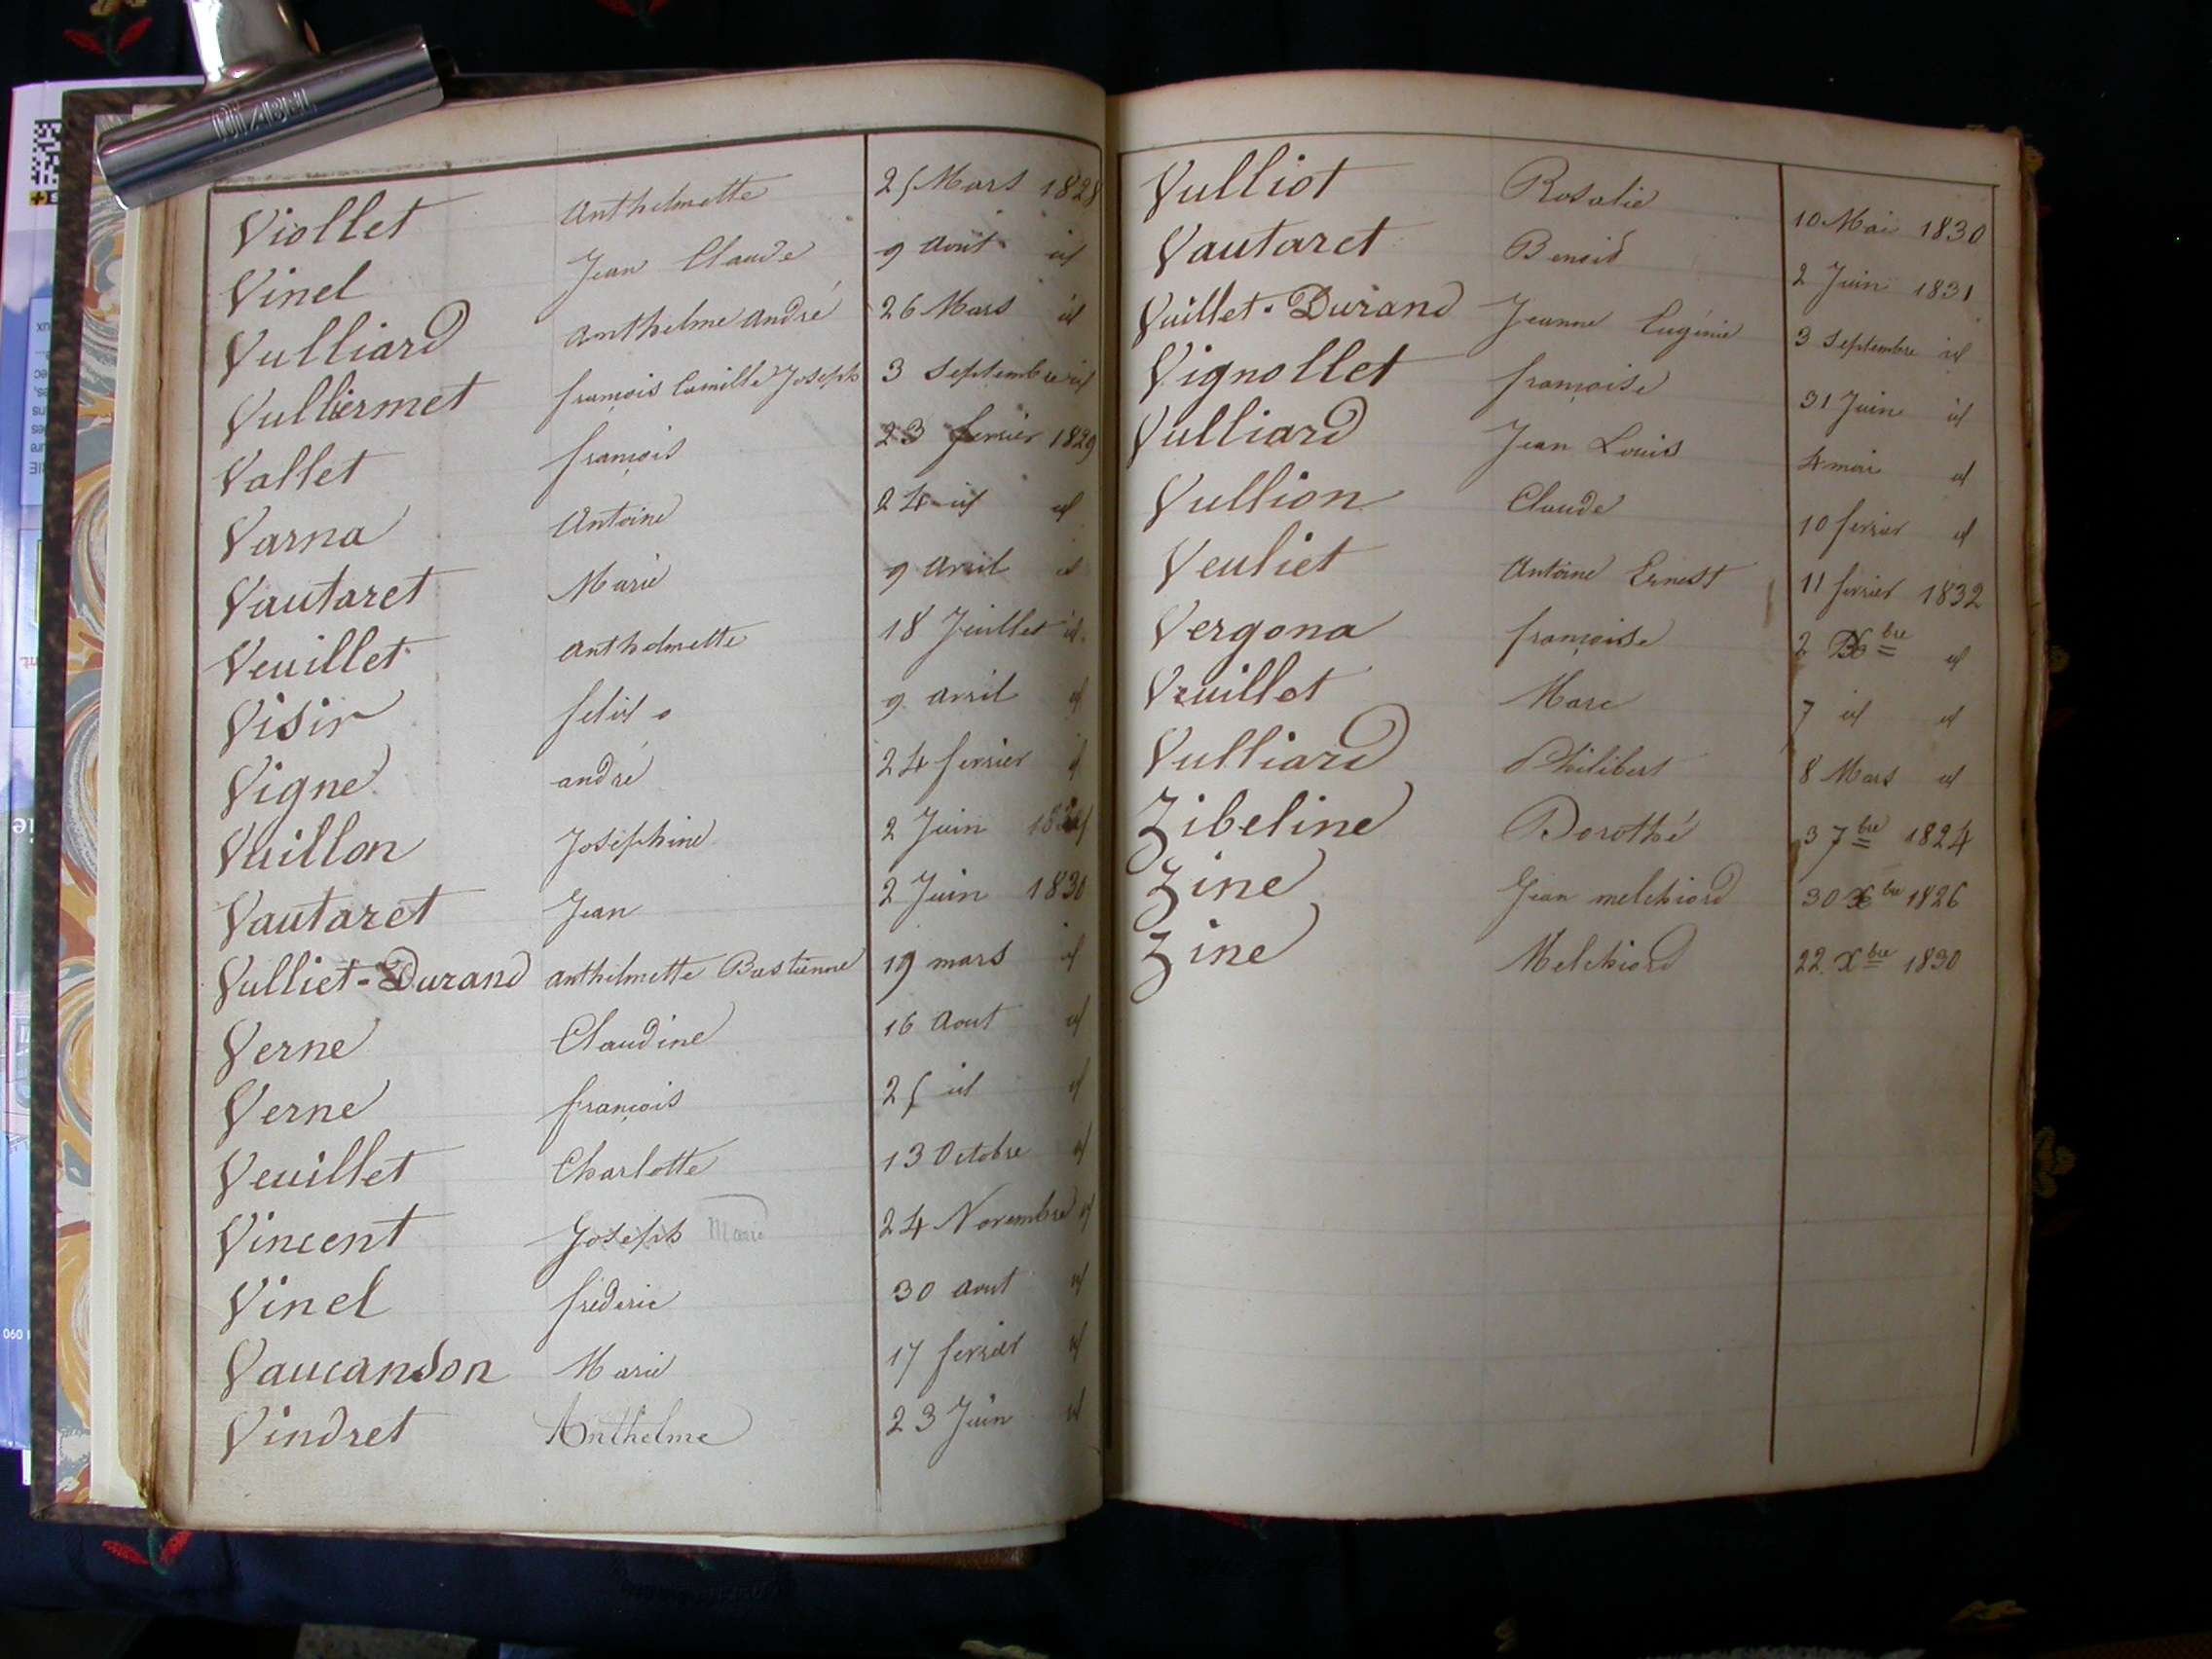 Viollet Anthelmette 25 Mars 1828
Vinel Jean Claude 9 Août id
Vulliard Anthelme André 26 Mars id
Vulliermet françois Camille Joseph 3 Septembre id
Vallet françois 23 fevrier 1829
Varna Antoine 24 id id
Vautaret Marie 9 Avril id
Veuillet Anthelmette 18 Juillet id
Visir felix 9 avril id
Vigne andré 24 fevrier id
Vuillon Josephine 2 Juin
Vautaret Jean 2 Juin 1830
Vulliet-Durand anthelmette Bastienne 19 mars id
Verne Claudine 16 Aout id
Verne françois 25 id id
Veuillet Charlotte 13 Octobre id
Vincent Joseph Marie 24 Novembre id
Vinel fréderic 30 Aout id
Vaucanson Marie 17 fevrier id
Vindret Anthelme 23 Juin id
Vulliot Rosalie 10 Mai 1830
Vautaret Benoit 2 Juin 1831
Vuillet-Durand Jeanne Eugénie 3 Septembre id
Vignollet françoise 31 Juin id
Vulliard Jean Louis 4 mai id
Vullion Claude 10 fevrier id
Veuliet Antoine Ernest 11 fevrier 1832
Vergona françoise 2 bre id
Veuillet Marc 7 id id
Vulliard Philibert 8 Mars id
Zibeline Dorothé 3 7bre 1824
Zine Jean melchiord 30 Xbre 1826
Zine Melchiord 22 Xbre 1830